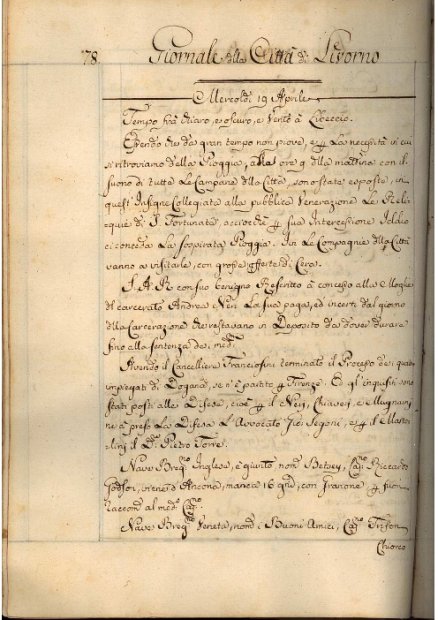 78. Giornale della Città di Livorno
Mercoldì 19 Aprile
Tempo frà chiaro, e oscuro, e Vento à Libeccio.
Essendo che da gran tempo non piove, e p la necessità in cui
si ritroviamo della Pioggia, alle ore 9 della mattina con il
suono di tutte le Campane della Città, sono state esposte, in
quest'Insigne Collegiata alla pubblica Venerazione le Reli-
quie di S. Fortunata, acciochè p sua Intercessione Iddio
ci conceda la sospirata Pioggia. Le Compagnie della Città
vanno a visitarle, con grosse offerte di Cera.
S. A. R. con suo benigno Rescritto à concesso alla Moglie
del carcerato Andrea Neri la sua paga, ed incerti dal giorno
della Carcerazione che restavano in Deposito da dover durare
fino alla sentenza de med.mi
Avendo il Cancelliere Franciosini terminato il Processo de quattro
impiegati di Dogana, se n'è partito p Firenze. Ed gl'inquisiti sono
stati posti alle Difese, cioè p il Neri, Chiaveri, e Mugnai
ne à preso la Difesa l'Avvocato Segoni, e p il
il D. Pietro Torre.
Nave Breg.no Inglese, è giunto nom.o Betsey, Cap.no Riccardo
viene da Ancona, manca 16 gni, con granone p fuori
Raccom.o al med.o Cap.no
Nave Breg.no Veneta, nom.o i Buoni Amici, Cap.no Trifon
Chiorco